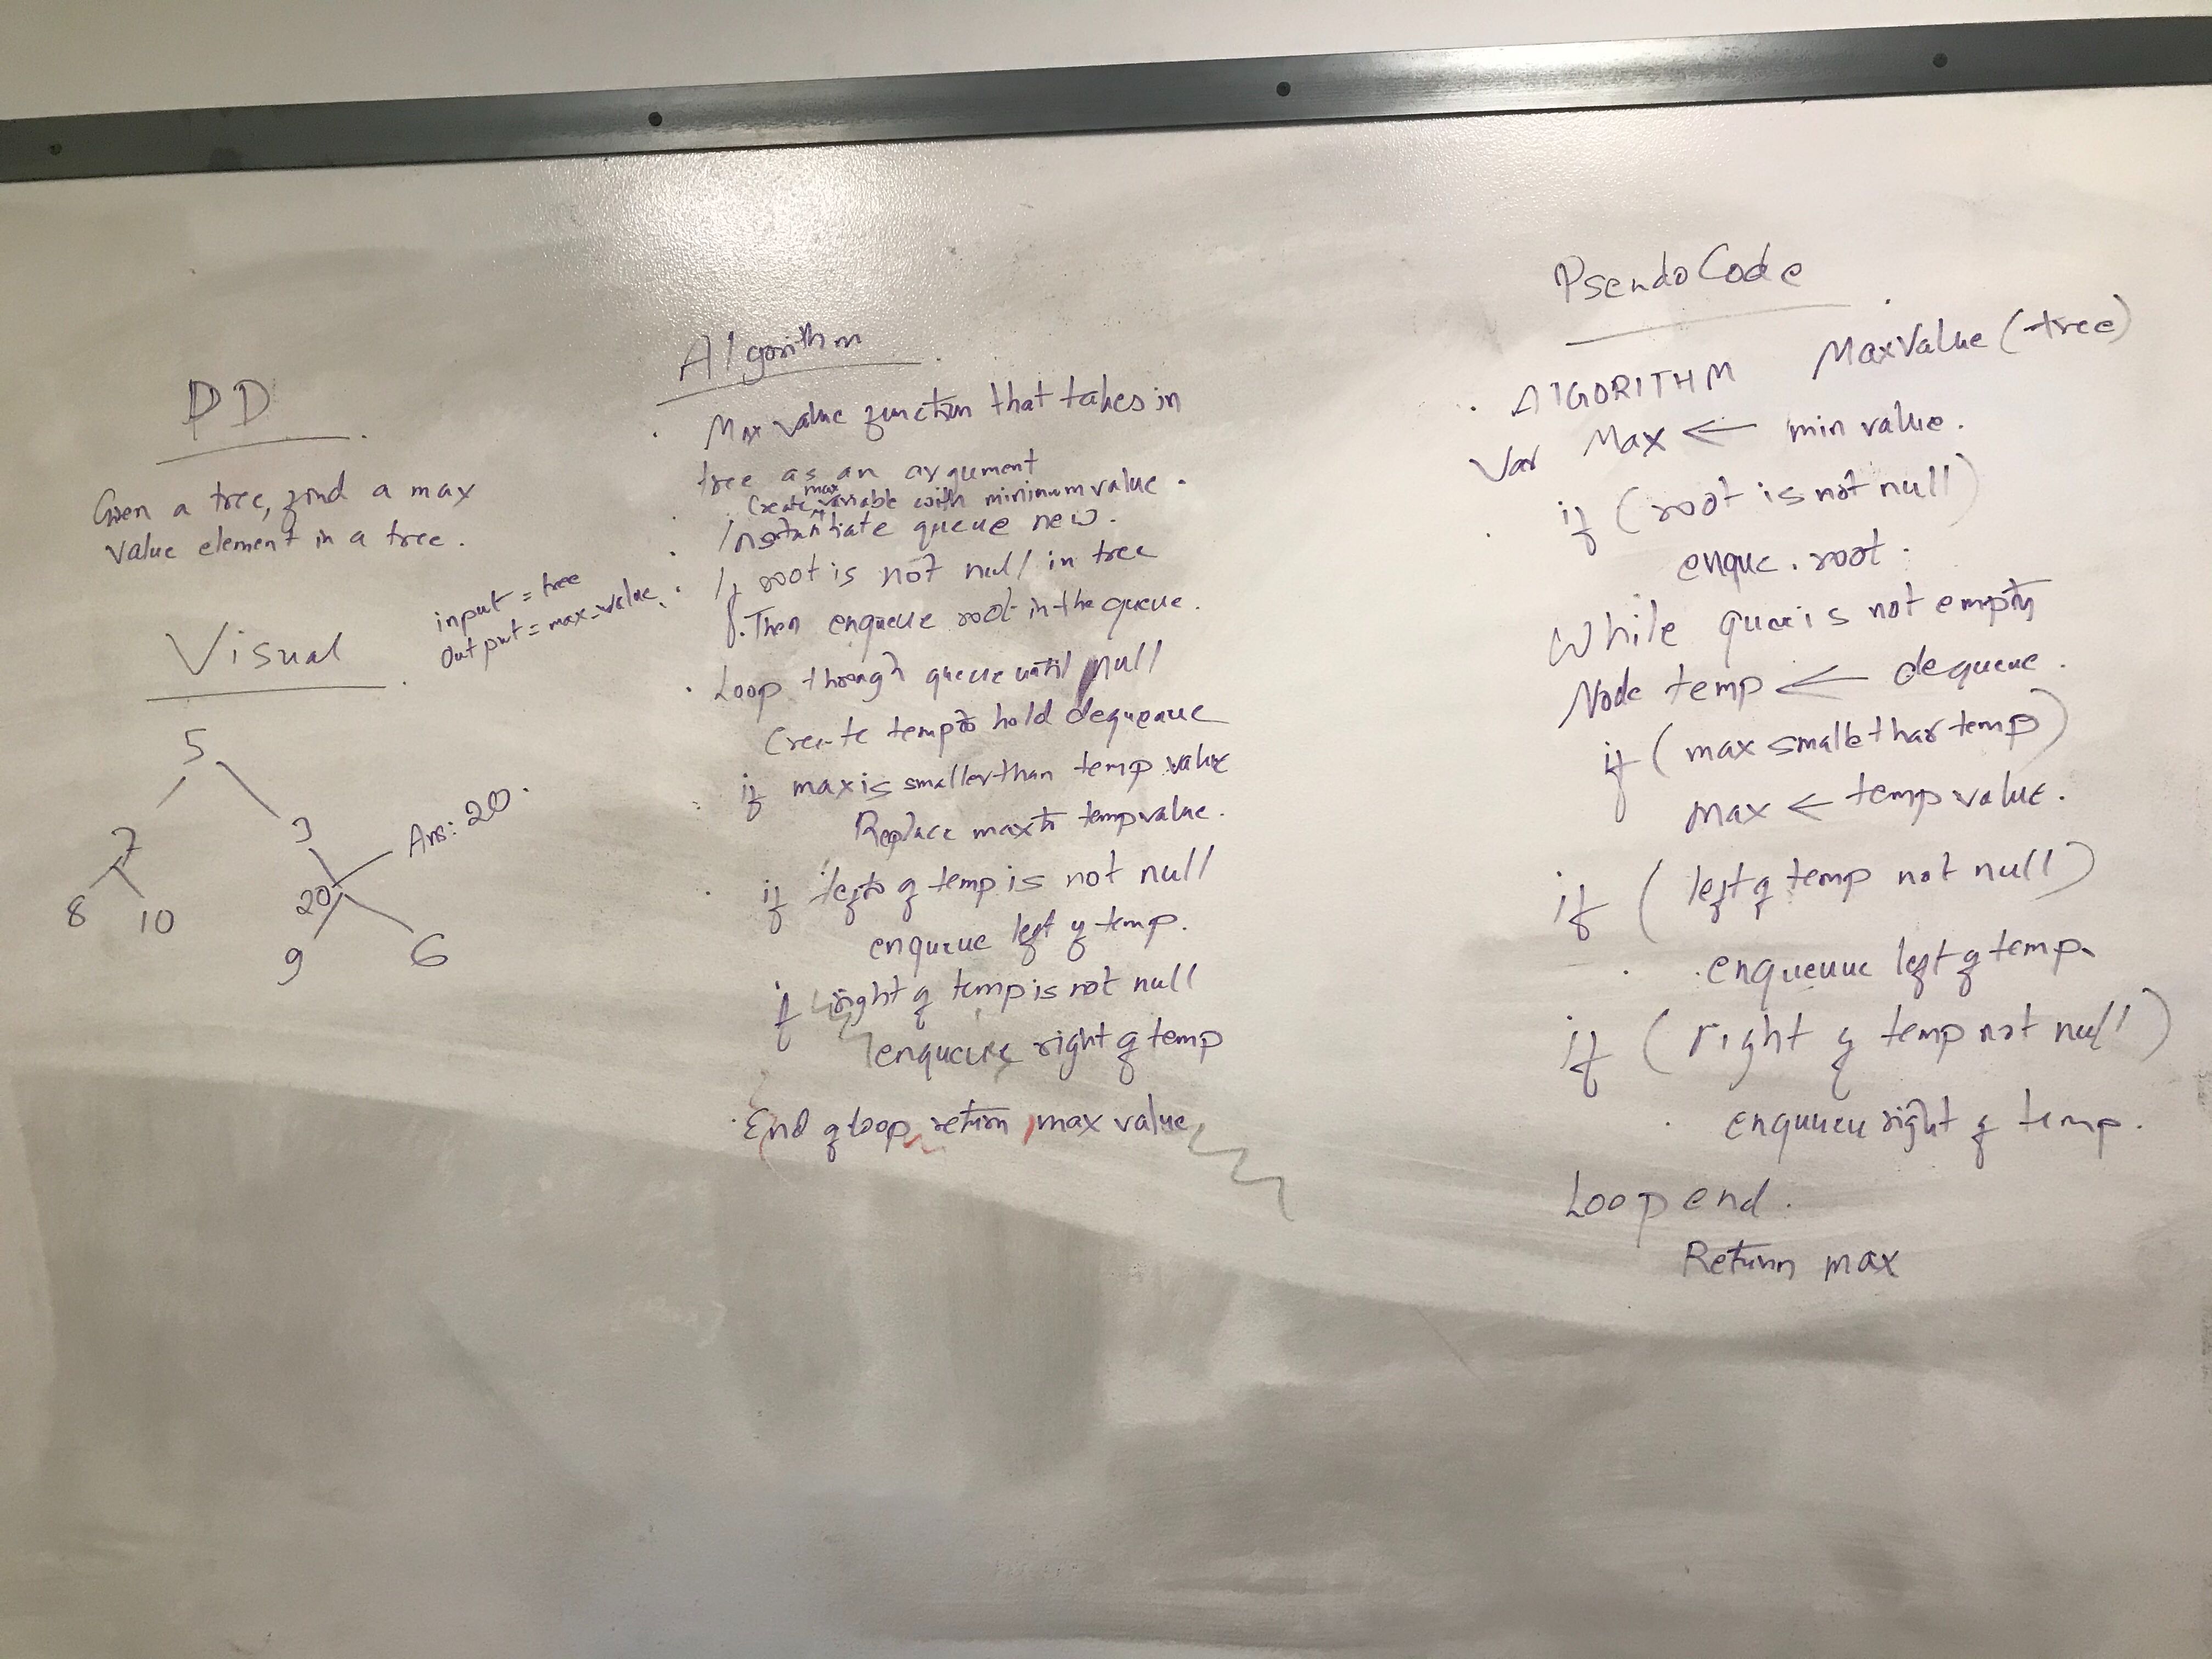 PD
Given a tree, find a max
value element in a tree.
input = tree
output = max-value.
Visual
5
7
3
Ans: 20.
8
10
20
9
6
Algorithm
Max value function that takes in
tree as an argument
Create max variable with mininum value.
Instantiate queue new.
If root is not null in tree
Then enqueue root in the queue.
Loop through queue until null
Create temp to hold dequeaue
if max is smaller than temp value
Replace max to temp value.
if left of temp is not null
enqueue left of temp.
if right of temp is not null
enqueue right of temp
End of loop return max value
PseudoCode
ALGORITHM MaxValue (tree)
Var Max ← min value.
if (root is not null)
enque. root.
While queue is not empty
Node temp ← dequeue.
if (max smalle than temp)
max ← temp value.
if (left of temp not null)
enqueuue left of temp.
if (right of temp not null)
enqueueu right of temp.
Loop end.
Return max